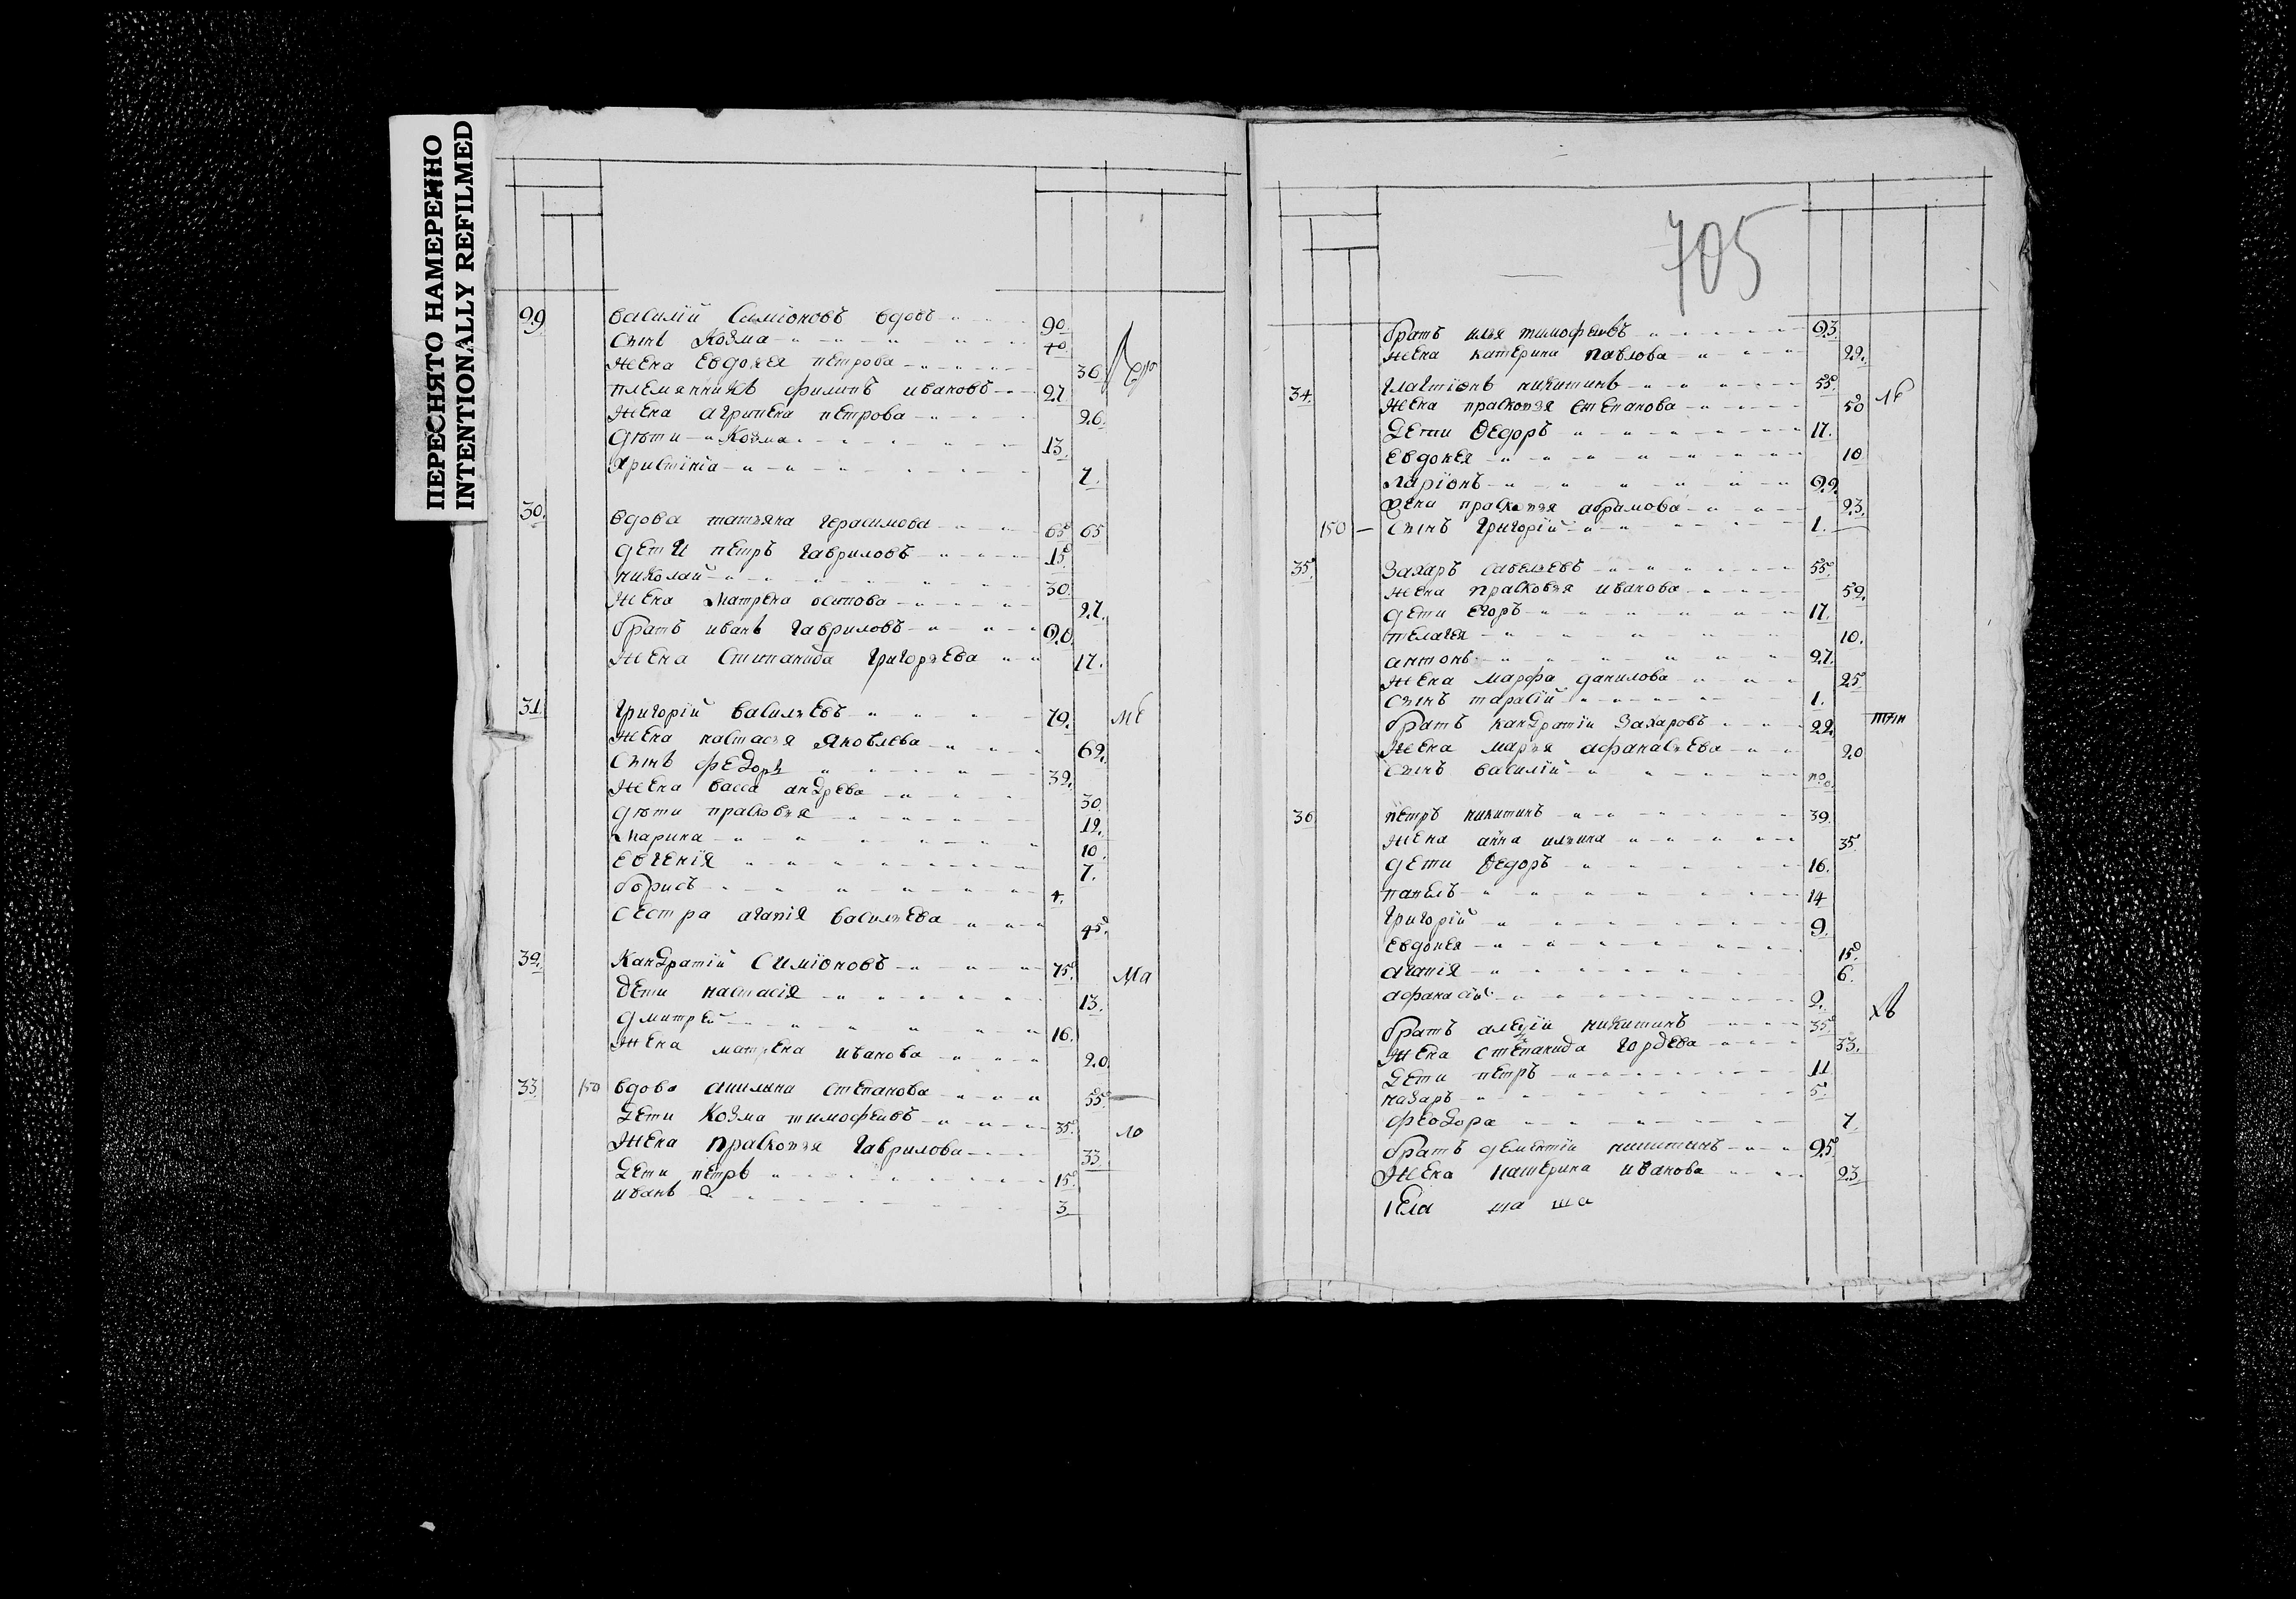 ПЕРЕСНЯТО НАМЕРЕННО
INTENTIONALLY REFILMED
29 василїй Симїоновъ вдовъ 90
Сынъ Козма 40
жена Евдокея петрова 36
племянникъ филипъ ивановъ 27
жена агрипена петрова 26
дѣти Козма 13
христинїа 7
30 вдова татьяна герасимова 65 65
дети петръ гавриловъ 15
николай 30
жена матрена осипова 27
братъ иванъ гавриловъ 20
жена Степанида григорьева 17
31 григорїй васильевъ 79
жена настасья яковлева 62
Сынъ федоръ 32
жена васса андрева 30
дѣти прасковья 12
марина 10
евгенїя 7
борисъ 4
сестра агапїя васильева 45
32 Кандратїй Симїоновъ 75 Ма
дети настасїя 13
дмитрей 16
жена матрена иванова 20
33 150 вдова акилина степанова 55
дети Козма тимофеивъ 35
жена праскопья гаврилова 33
дети петръ 15
иванъ 3
705
братъ илья тимофеивъ 23
жена катерина павлова 22
34 галактїонъ никитинъ 55
жена праскопья степанова 50
дети ѳедоръ 17
евдокея 10
ларїонъ 29
жена праскопья абрамова 23
150 Сынъ григорїй 1
35 Захаръ савельевъ 55
жена прасковья иванова 52
дети егоръ 17
пелагея 10
антонъ 27
жена марфа данилова 25
Сынъ тарасїй 1
братъ кандратїй Захаровъ 22
жена марья афанасьева 20
Сынъ василїй
36 петръ никитинъ 39
жена анна ильина 35
дети ѳедоръ 16
павелъ 14
григорїй 9
евдокея 15
агапїя 6
афанасїй 2
братъ алеѯїй никитинъ 35
жена степанида гордева 33
дети петръ 11
назаръ 5
феодора 7
братъ дементїй никитинъ 25
жена катерина иванова 23